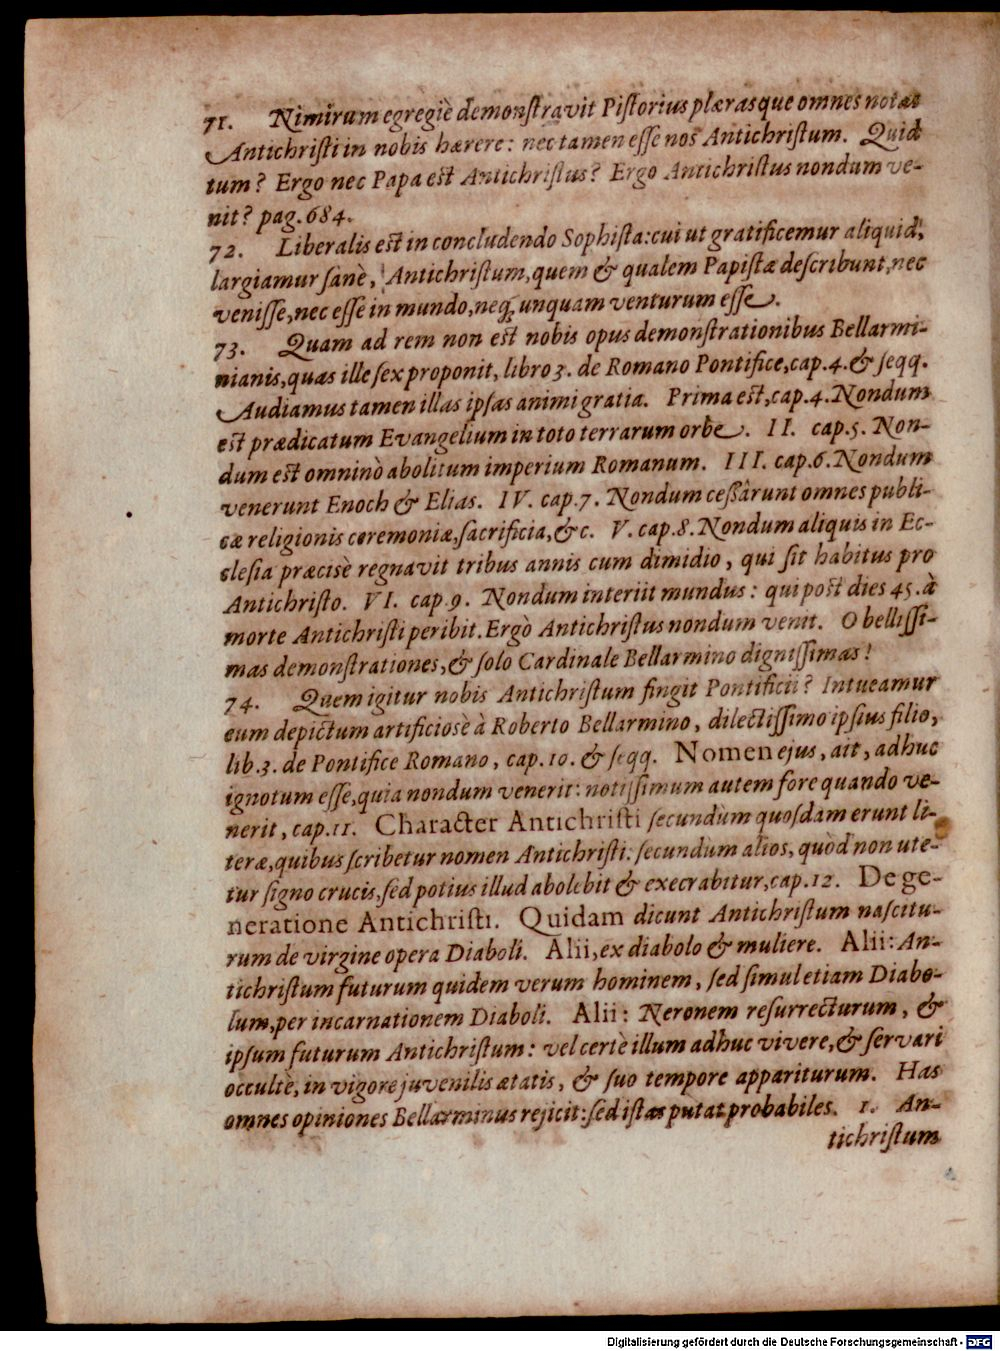 71. Nimirum egregiè demonſtravit Piſtorius plæraſque omnes notas
Antichriſti in nobis hærere: nec tamen eſſe nos Antichriſtum. Quid
tum? Ergo nec Papa eſt Antichriſtus? Ergo Antichriſtus nondum ve-
nit? pag. 684.
72. Liberalis eſt in concludendo Sophiſta: cui ut gratificemur aliquid,
largiamur ſanè, Antichriſtum, quem & qualem Papiſtæ deſcribunt, nec
veniſſe, nec eſſe in mundo, neq; unquam venturum eſſe.
73. Quam ad rem non eſt nobis opus demonſtrationibus Bellarmi-
nianis, quas ille ſex proponit, libro 3. de Romano Pontifice, cap. 4. & ſeqq.
Audiamus tamen illas ipſas animi gratia. Prima eſt, cap. 4. Nondum
eſt prædicatum Evangelium in toto terrarum orbe. II. cap. 5. Non-
dum eſt omninò abolitum imperium Romanum. III. cap. 6. Nondum
venerunt Enoch & Elias. IV. cap. 7. Nondum ceſſârunt omnes publi-
cæ religionis ceremoniæ, ſacrificia, &c. V. cap. 8. Nondum aliquis in Ec-
cleſia præcisè regnavit tribus annis cum dimidio, qui ſit habitus pro
Antichriſto. VI. cap. 9. Nondum interiit mundus: qui poſt dies 45. à
morte Antichriſti peribit. Ergò Antichriſtus nondum venit. O belliſſi-
mas demonſtrationes, & ſolo Cardinale Bellarmino digniſſimas!
74. Quem igitur nobis Antichriſtum fingit Pontificii? Intueamur
eum depictum artificiosè à Roberto Bellarmino, dilectiſſimo ipſius filio,
lib. 3. de Pontifice Romano, cap. 10. & ſeqq. Nomen ejus, ait, adhuc
ignotum eſſe, quia nondum venerit: notiſſimum autem fore quando ve-
nerit, cap. 11. Character Antichriſti ſecundùm quoſdam erunt li-
teræ, quibus ſcribetur nomen Antichriſti: ſecundùm alios, quòd non ute-
tur ſigno crucis, ſed potius illud abolebit & execrabitur, cap. 12. De ge-
neratione Antichriſti. Quidam dicunt Antichriſtum naſcitu-
rum de virgine opera Diaboli. Alii, ex diabolo & muliere. Alii: An-
tichriſtum futurum quidem verum hominem, ſed ſimul etiam Diabo-
lum, per incarnationem Diaboli. Alii: Neronem reſurrecturum, &
ipſum futurum Antichriſtum: vel certè illum adhuc vivere, & ſervari
occultè, in vigore juvenilis ætatis, & ſuo tempore appariturum. Has
omnes opiniones Bellarminus rejicit: ſed iſtas putat probabiles. 1. An-
tichriſtum
Digitalisierung gefördert durch die Deutsche Forschungsgemeinschaft - DFG